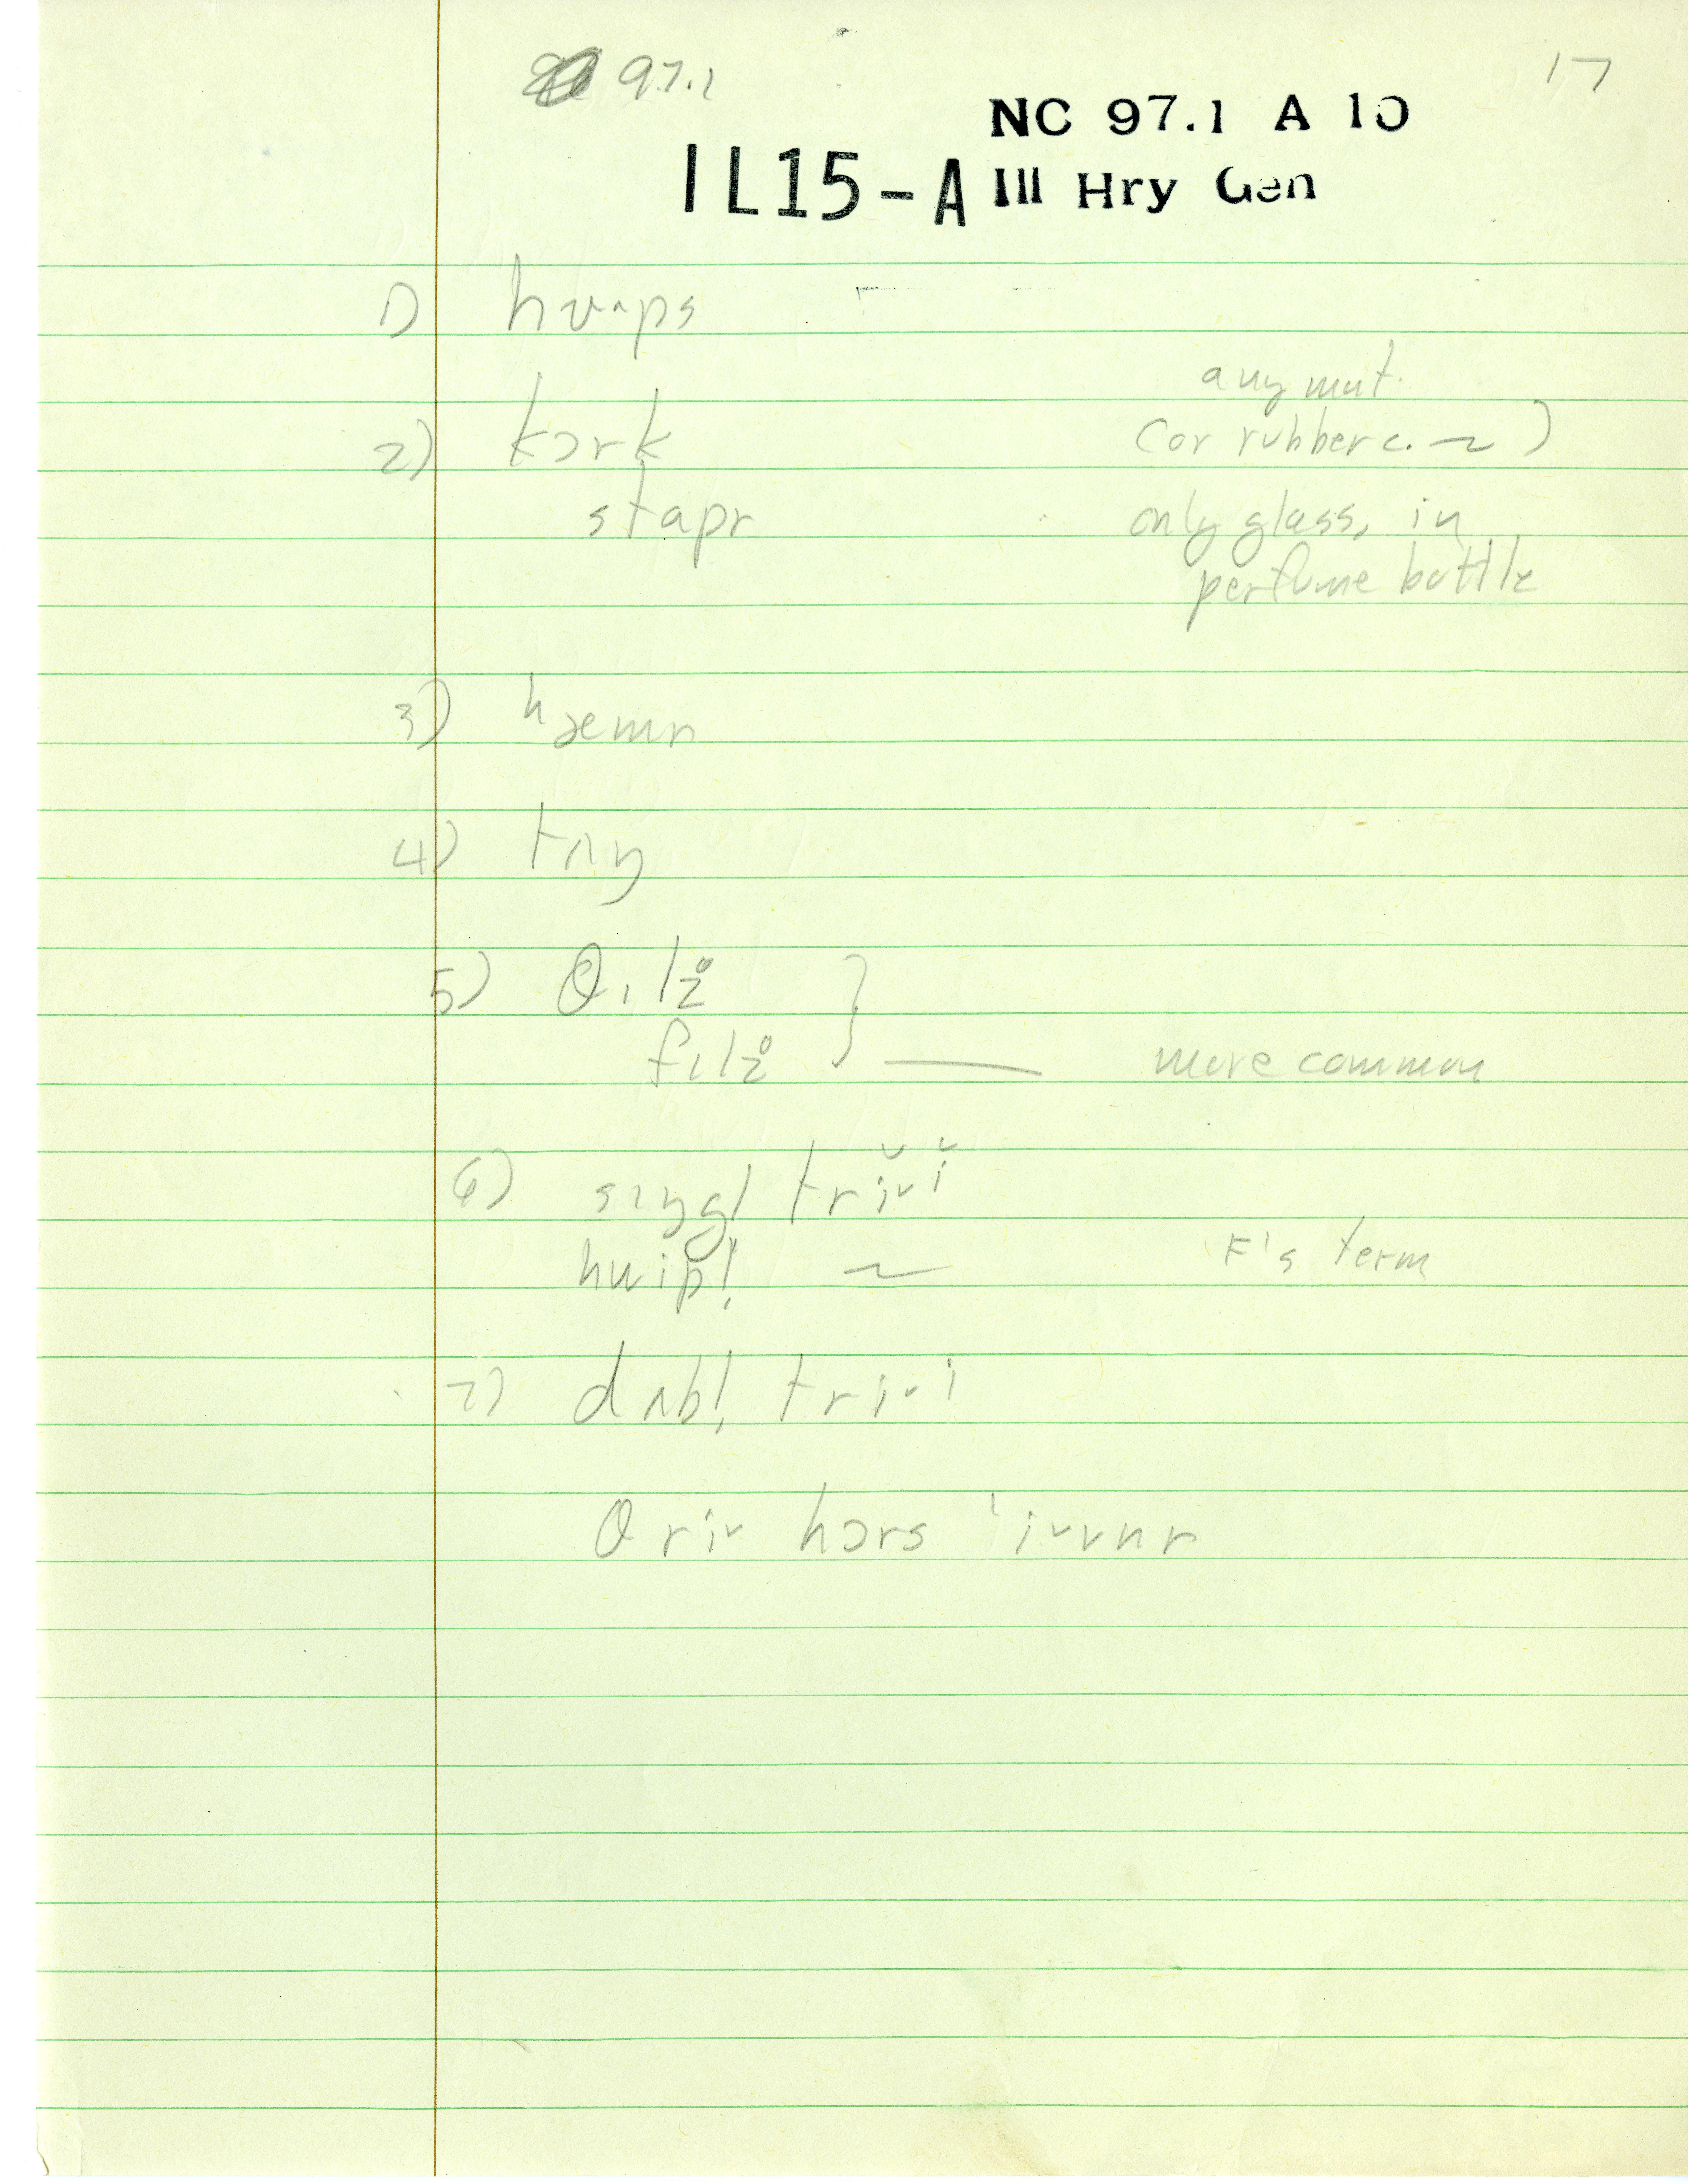 97.1
17
NC 97.1 A 10
IL15-A Ill Hry Gen
1) hʊᴧps
any mat.
2) kɔrk (or rubber c. ~)
stapr only glass, in
perfume bottle
3) hæmr
4) tʌŋ
5) θɪlz̥
fɪlz̥ } — more common
6) sɪŋgl̩ triˇi
hwipl̩ ~ F's term
7) dʌbl̩ triᵛi
θriᵛ hɔrs ˈiᵛvnr